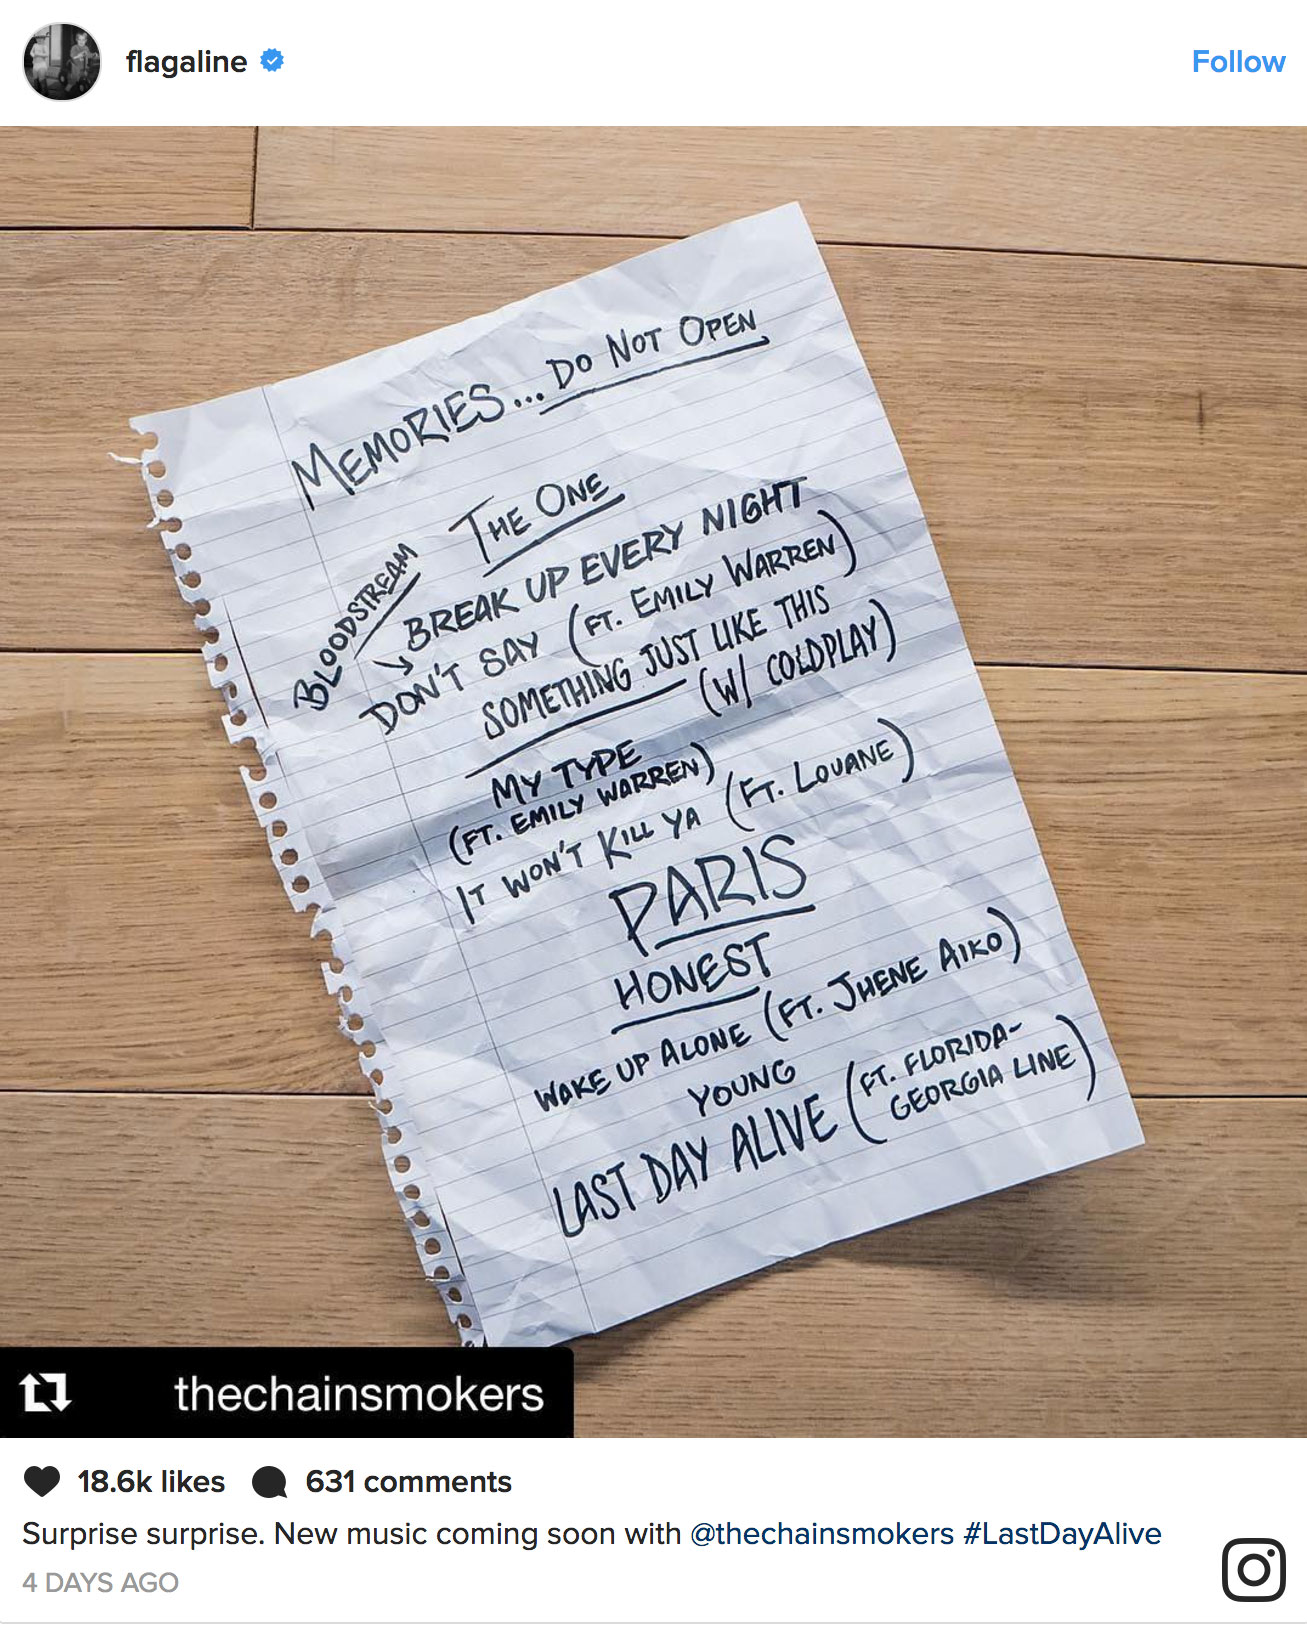 flagaline
Follow
MEMORIES... DO NOT OPEN
THE ONE
BLOODSTREAM
BREAK UP EVERY NIGHT
DON'T SAY (FT. EMILY WARREN)
SOMETHING JUST LIKE THIS
(W/ COLDPLAY)
MY TYPE
(FT. EMILY WARREN)
IT WON'T KILL YA (FT. LOUANE)
PARIS
HONEST
WAKE UP ALONE (FT. JHENE AIKO)
YOUNG
LAST DAY ALIVE (FT. FLORIDA-
GEORGIA LINE)
thechainsmokers
18.6k likes 631 comments
Surprise surprise. New music coming soon with @thechainsmokers #LastDayAlive
4 DAYS AGO